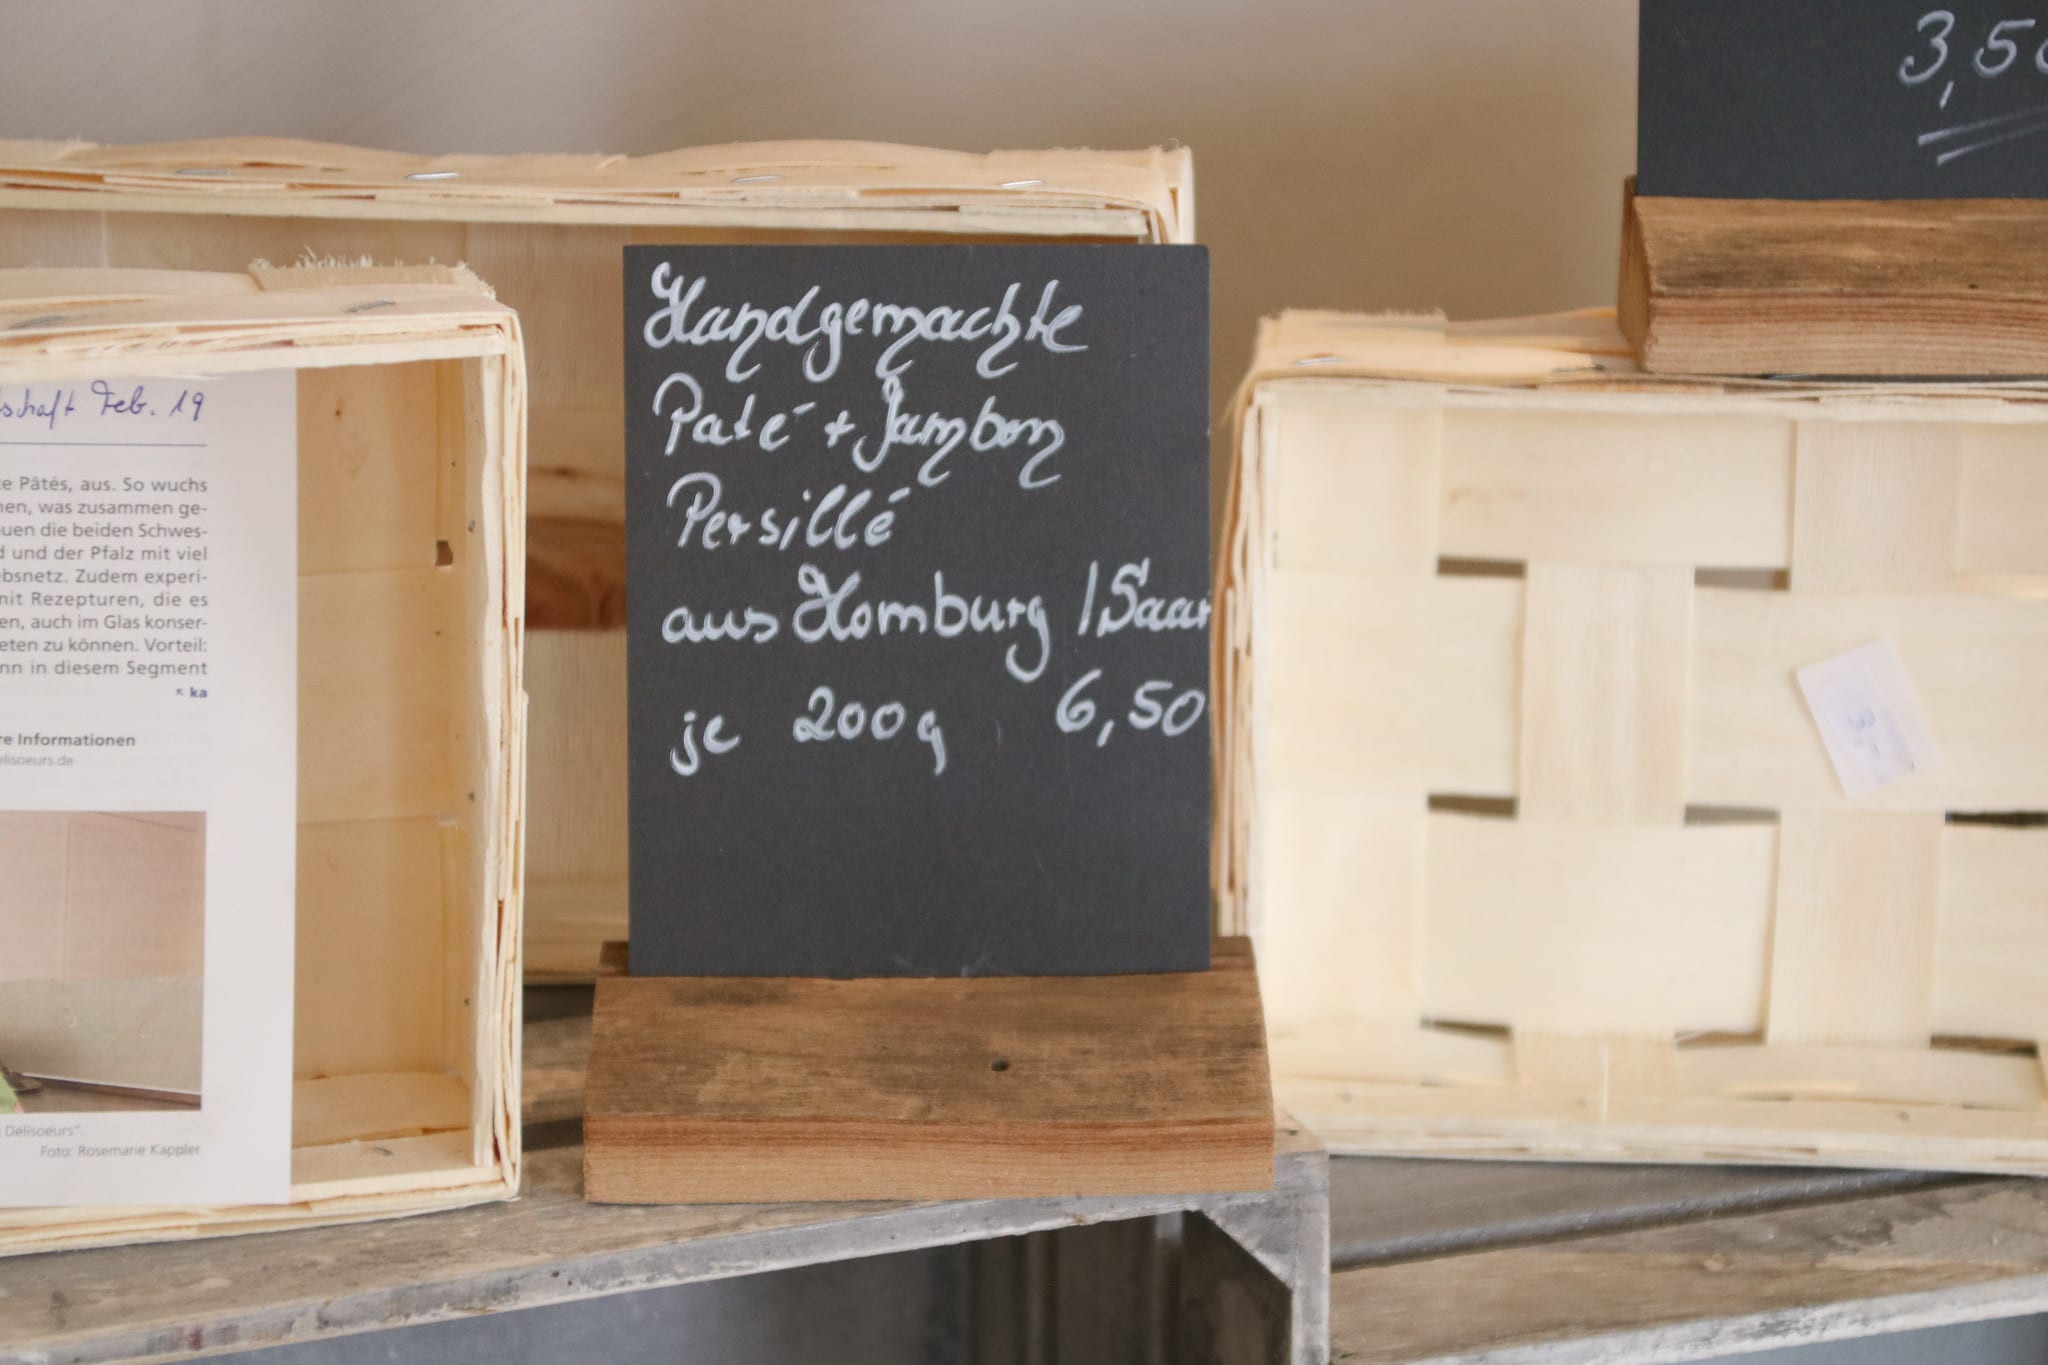 Handgemachte
Paté + Jambon
Persillé
aus Homburg /Saar
je 200g 6,50
3,50
schaft Feb. 19
Pâtés, aus. So wuchs
was zusammen ge-
die beiden Schwes-
und der Pfalz mit viel
Zudem experi-
mit Rezepturen, die es
auch im Glas konser-
zu können. Vorteil:
in diesem Segment
ka
Informationen
elisoeurs.de
Délisoeurs".
Foto: Rosemarie Kappler